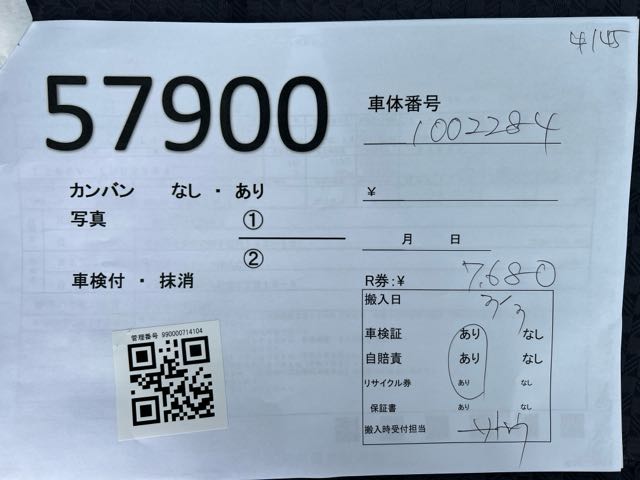 4145
57900
車体番号
1002284
カンバン なし ・ あり
¥
写真 ①
②
月 日
車検付 ・ 抹消
R券:¥ 7,680
搬入日 3/3
管理番号 990000714104
車検証 あり なし
自賠責 あり なし
リサイクル券 あり なし
保証書 あり なし
搬入時受付担当